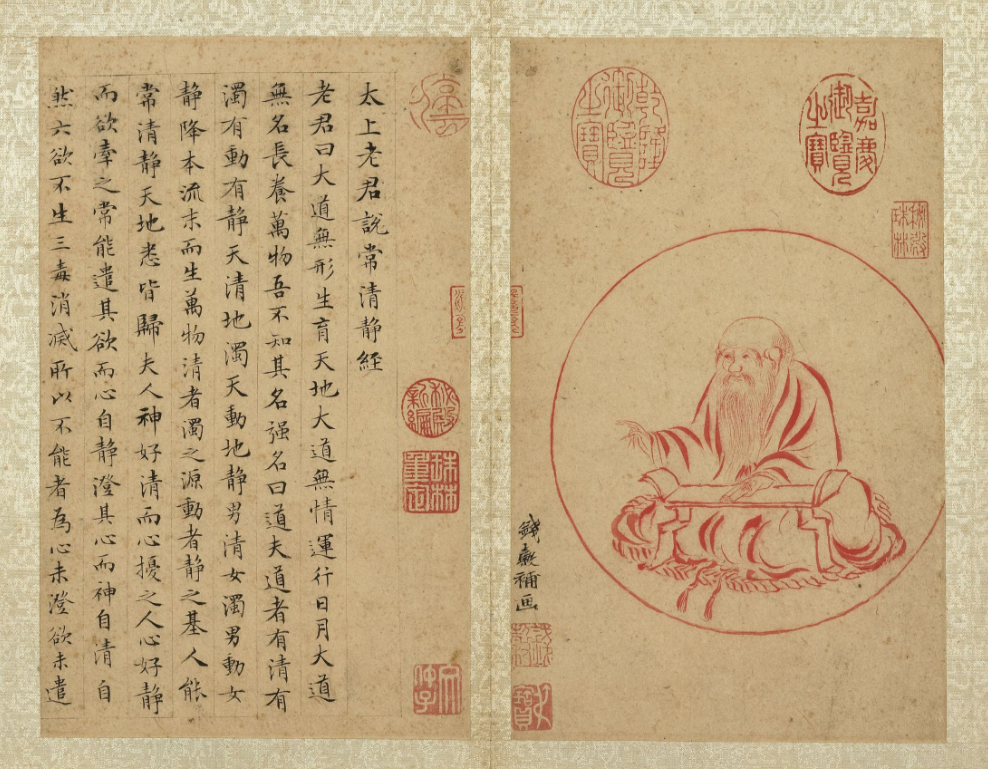 嘉慶御覽之寶
乾隆御覽之寶
秘殿珠林
錢穀補画
秘殿新編
珠林重定
太上老君說常清静経
老君曰大道無形生育天地大道無情運行日月大道
無名長養萬物吾不知其名强名曰道夫道者有清有
濁有動有静天清地濁天動地静男清女濁男動女
静降本流末而生萬物清者濁之源動者静之基人能
常清静天地悉皆歸夫人神好清而心擾之人心好静
而欲牽之常能遣其欲而心自静澄其心而神自清自
然六欲不生三毒消滅所以不能者為心未澄欲未遣